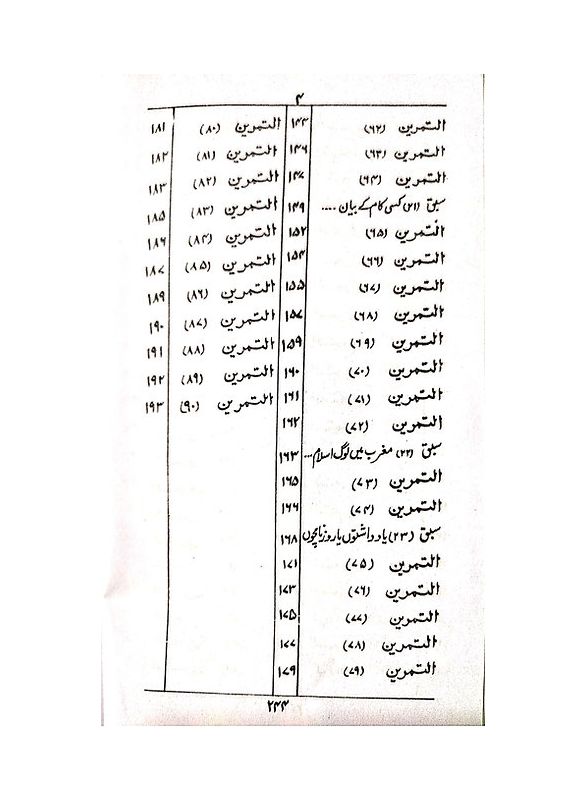 ۴
التمرین (۶۲) ۱۴۴
التمرین (۶۳) ۱۴۶
التمرین (۶۴) ۱۴۷
سبق (۲۱) کسی کام کے بیان .... ۱۴۹
التمرین (۶۵) ۱۵۲
التمرین (۶۶) ۱۵۴
التمرین (۶۷) ۱۵۵
التمرین (۶۸) ۱۵۷
التمرین (۶۹) ۱۵۹
التمرین (۷۰) ۱۶۰
التمرین (۷۱) ۱۶۱
التمرین (۷۲) ۱۶۲
سبق (۲۲) مغرب میں لوگ اسلام... ۱۶۳
التمرین (۷۳) ۱۶۵
التمرین (۷۴) ۱۶۶
سبق (۲۳) یادداشتوں یا روزنامچوں ۱۶۸
التمرین (۷۵) ۱۷۱
التمرین (۷۶) ۱۷۳
التمرین (۷۷) ۱۷۵
التمرین (۷۸) ۱۷۷
التمرین (۷۹) ۱۷۹
التمرین (۸۰) ۱۸۱
التمرین (۸۱) ۱۸۲
التمرین (۸۲) ۱۸۳
التمرین (۸۳) ۱۸۵
التمرین (۸۴) ۱۸۶
التمرین (۸۵) ۱۸۷
التمرین (۸۶) ۱۸۹
التمرین (۸۷) ۱۹۰
التمرین (۸۸) ۱۹۱
التمرین (۸۹) ۱۹۲
التمرین (۹۰) ۱۹۳
۲۴۴